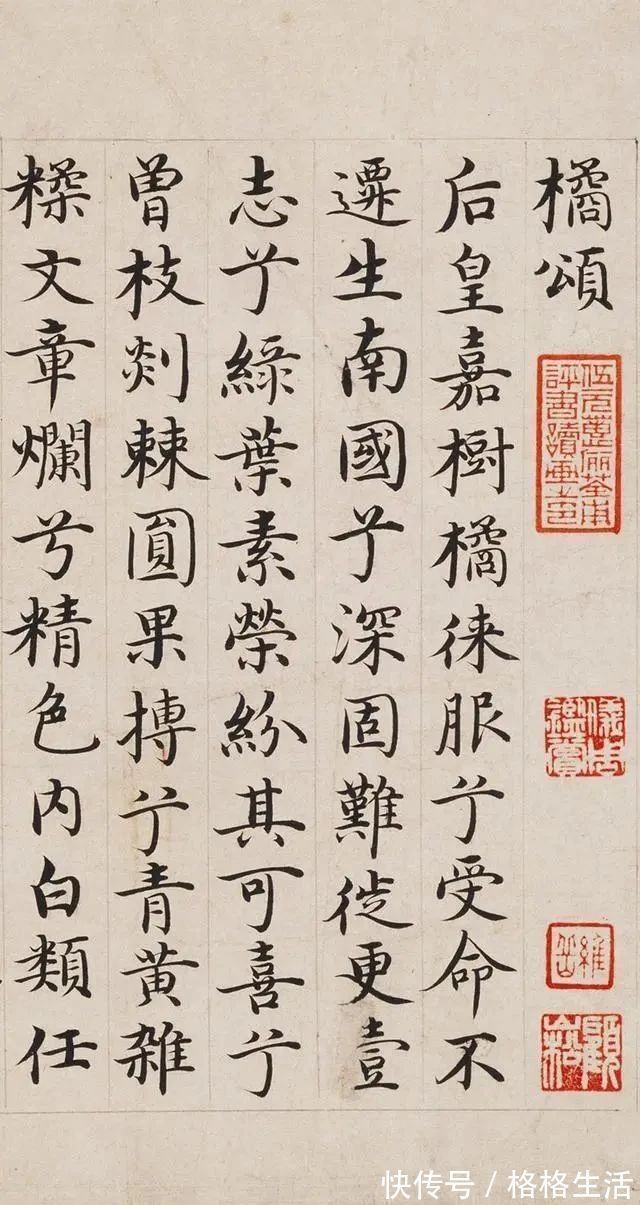 橘頌
后皇嘉樹橘徠服兮受命不
遷生南國兮深固難徙更壹
志兮綠葉素榮紛其可喜兮
曾枝剡棘圓果摶兮青黃雜
糅文章爛兮精色內白類任
儀周鑑賞
維岳
顧崧
快传号/格格生活